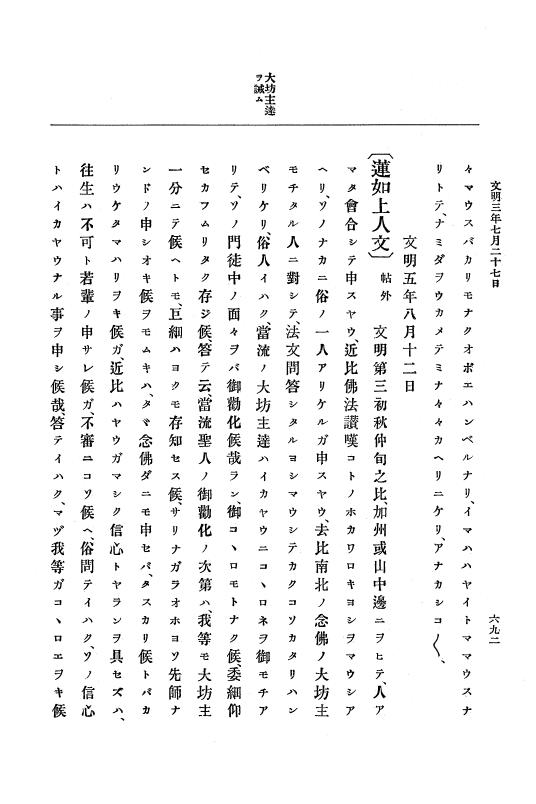 文明三年七月二十七日
六九二
大坊主達
ヲ誡ム
々マウスバカリモナクオボエハンベルナリ、イマハハヤイトママウスナ
リトテ、ナミダヲウカメテミナ々々カヘリニケリ、アナカシコ〱、
文明五年八月十二日
〔蓮如上人文〕 帖外 文明第三初秋仲旬之比、加州或山中邊ニヲヒテ、人ア
マタ會合シテ申スヤウ、近比佛法讃嘆コトノホカワロキヨシヲマウシア
ヘリ、ソノナカニ俗ノ一人アリケルガ申スヤウ、去比南北ノ念佛ノ大坊主
モチタル人ニ對シテ、法文問答シタルヨシマウシテカクコソカタリハン
ベリケリ、俗人イハク、當流ノ大坊主達ハイカヤウニコヽロネヲ御モチア
リテ、ソノ門徒中ノ面々ヲバ御勸化候哉ラン、御コヽロモトナク候、委細仰
セカフムリタク存ジ候、答テ云、當流聖人ノ御勸化ノ次第ハ、我等モ大坊主
一分ニテ候ヘトモ、巨細ハヨクモ存知セス候、サリナガラオホヨソ先師ナ
ンドノ申シオキ候ヲモムキハ、タヾ念佛ダニモ申セバ、タスカリ候トバカ
リウケタマハリヲキ候ガ、近比ハヤウガマシク信心トヤランヲ具セズハ、
往生ハ不可ト若輩ノ申サレ候ガ、不審ニコソ候ヘ、俗問テイハク、ソノ信心
トハイカヤウナル事ヲ申シ候哉、答テイハク、マヅ我等ガコヽロエヲキ候